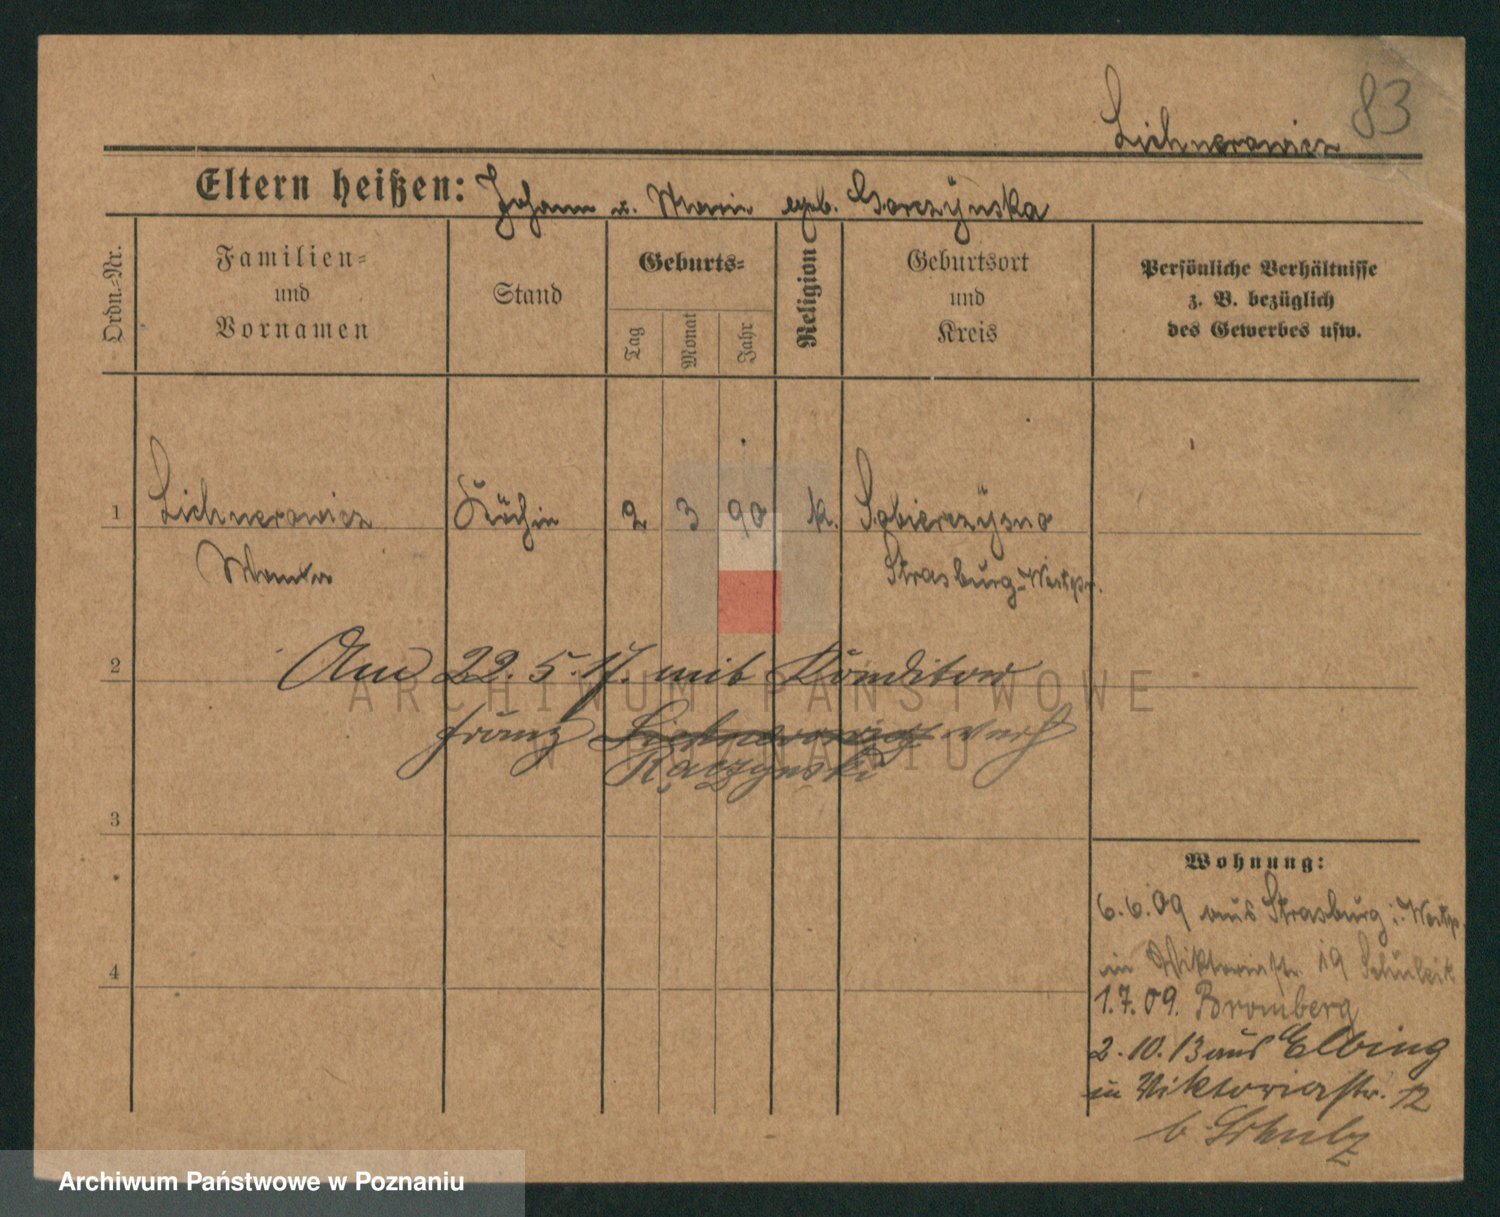 83
Lichnerowicz
Eltern heißen: Johann u. Marie geb. Gorczynska
Ordn.-Nr.
Familien-
und
Vornamen
Stand
Geburts-
Tag
Monat
Jahr
Religion
Geburtsort
und
Kreis
Persönliche Verhältnisse
z. B. bezüglich
des Gewerbes usw.
1 Lichnerowicz Köchin 2 3 90 k. Sobierczysno
Wanda Strasburg-Westpr.
2 Am 22.5.17. mit Konditor
Franz Lichnerowicz verh
Raczynski
3
4
Wohnung:
6.6.09 aus Strasburg i. Westp
in Viktoriastr. 19
1.7.09. Bromberg
2.10.13 aus Elbing
in Viktoriastr. 12
b. Schulz
ARCHIWUM PAŃSTWOWE
W POZNANIU
Archiwum Państwowe w Poznaniu